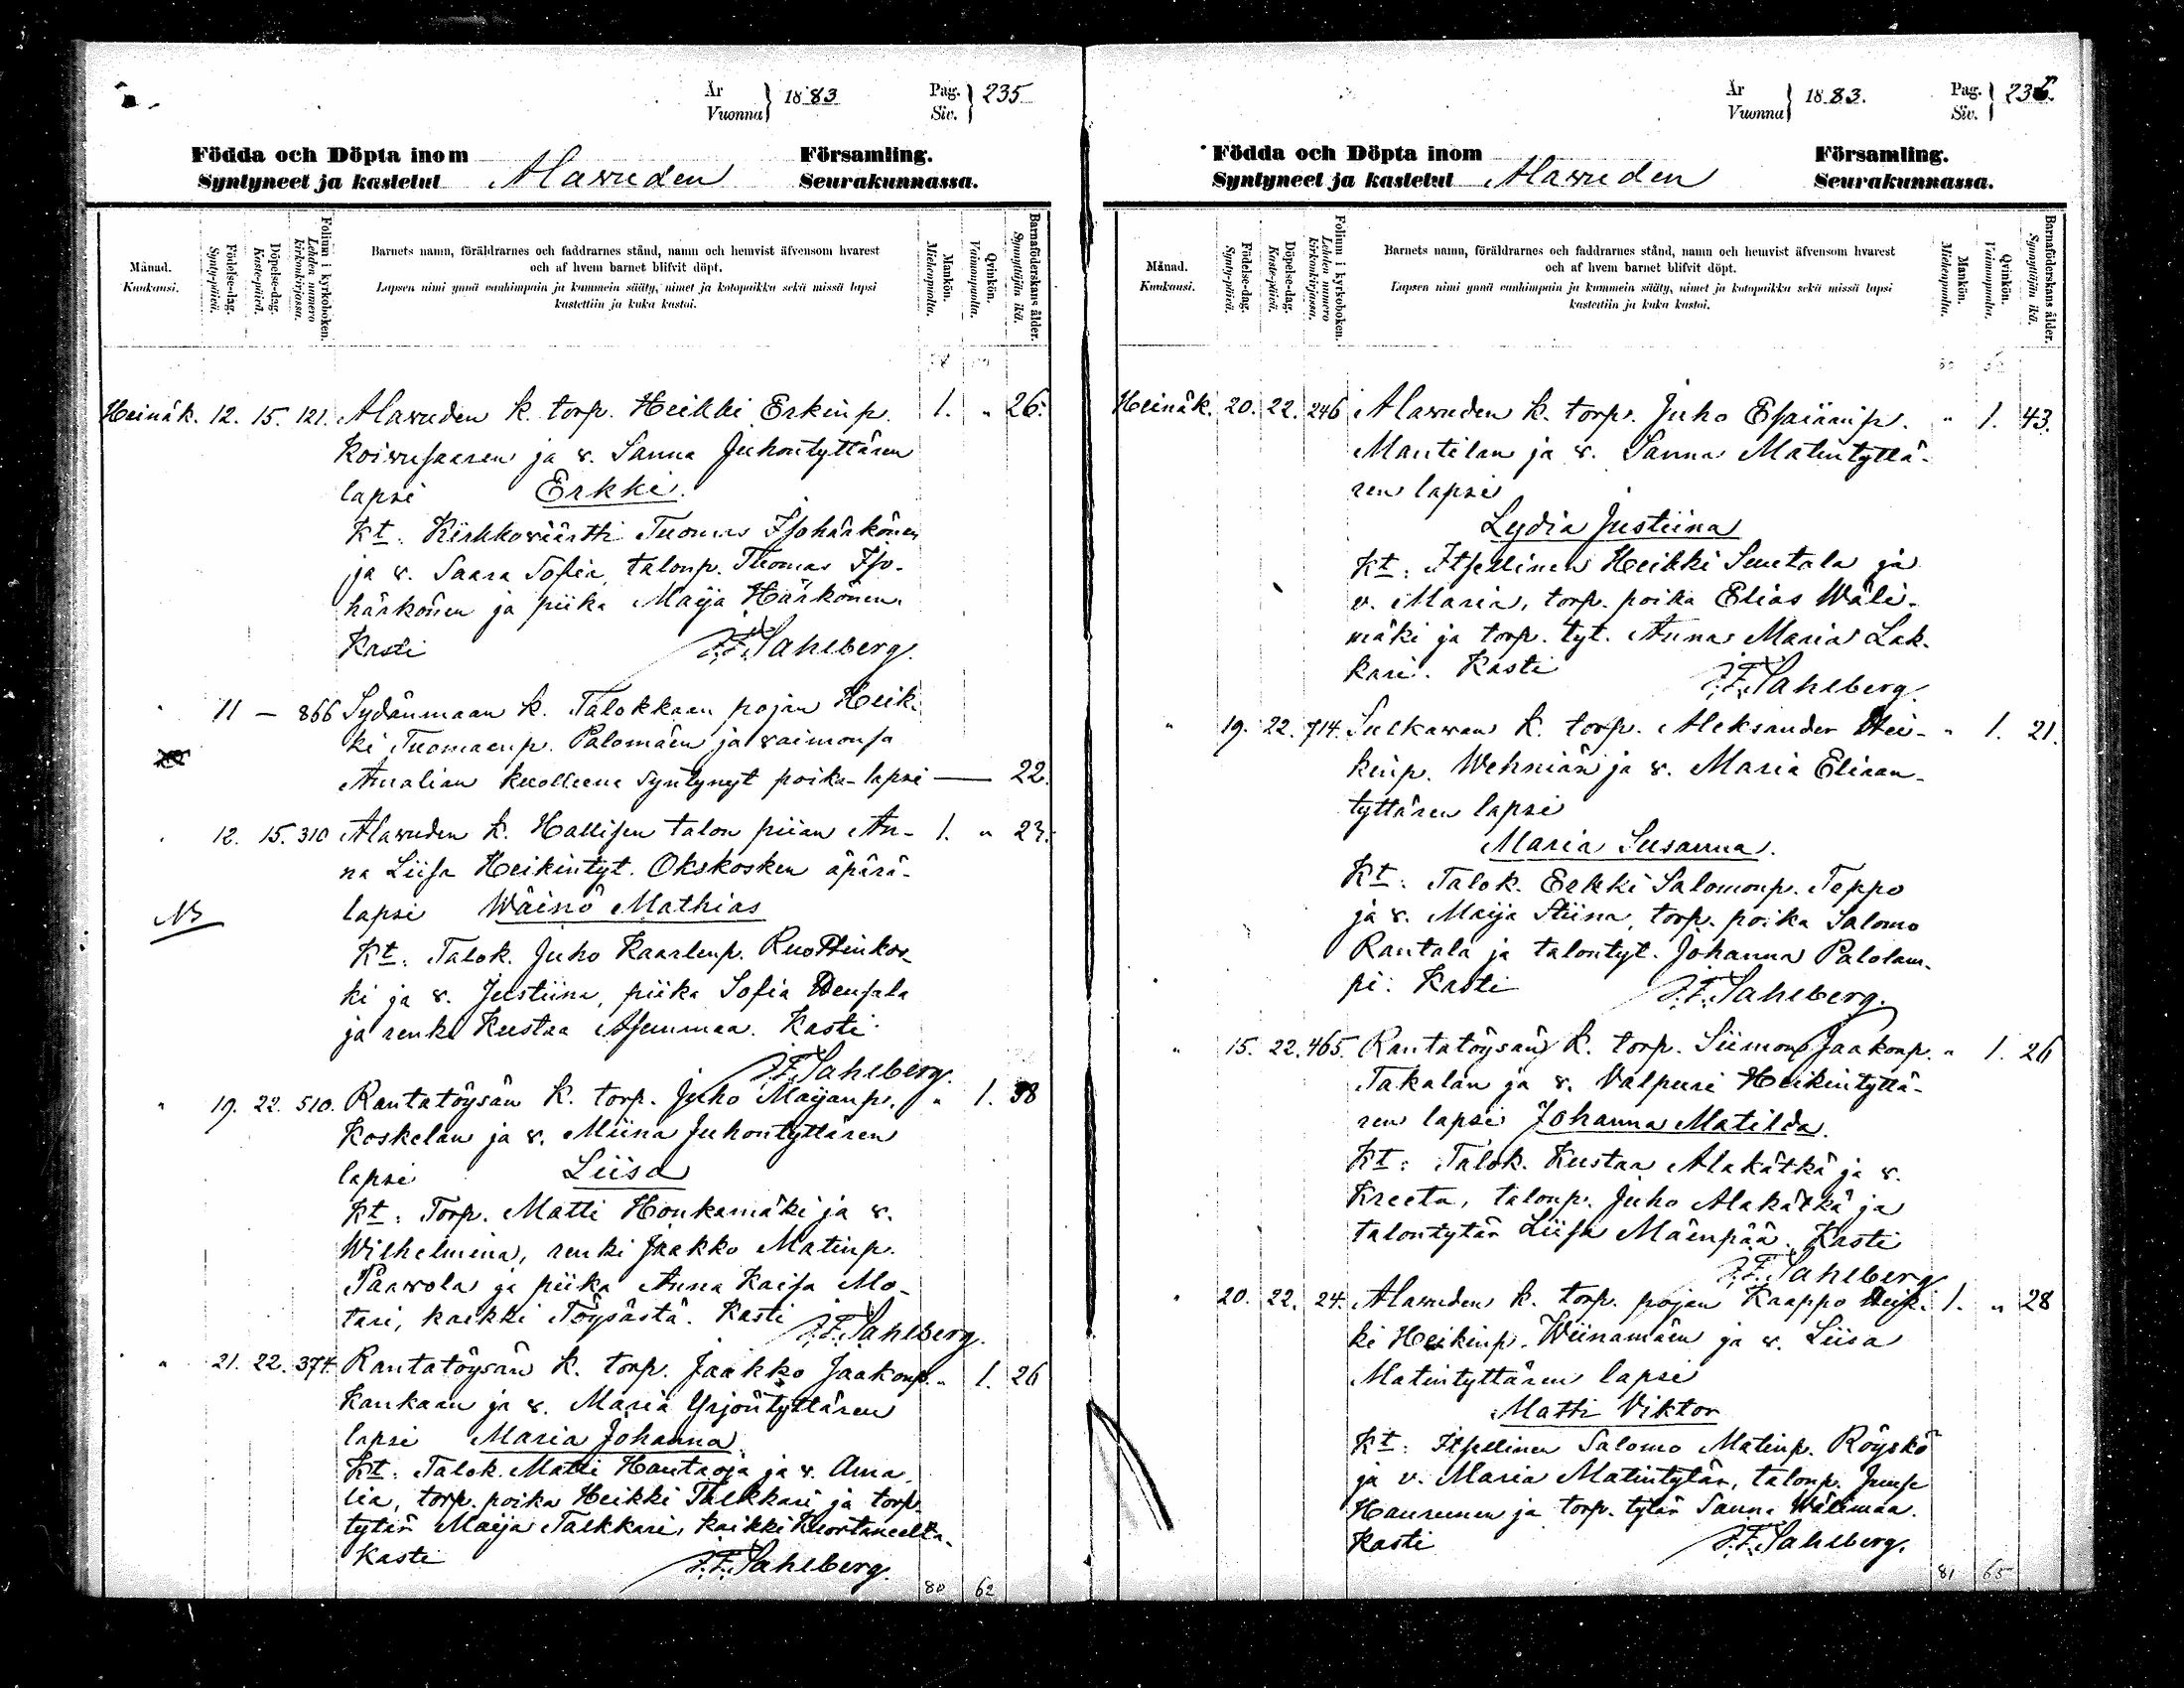 År
Vuonna } 1883 Pag.
Siv. } 235
Födda och Döpta inom Församling.
Syntyneet ja kastetut Alawuden Seurakunnassa.
Månad.
Kuukausi.
Födelse-dag.
Synty-päivä.
Döpelse-dag.
Kaste-päivä.
Folium i kyrkoboken.
Lehden numero kirkonkirjassa.
Barnets namn, föräldrarnes och faddrarnes stånd, namn och hemvist äfvensom hvarest
och af hvem barnet blifvit döpt.
Lapsen nimi ynnä vanhimpain ja kummein sääty, nimet ja kotopaikka sekä missä lapsi
kastettiin ja kuka kastoi.
Mankön.
Miehenpuolia.
Qvinkön.
Vaimonpuolia.
Barnaföderskans ålder.
Synnyttäjän ikä.
Heinäk. 12. 15. 121. Alawuden k. torp. Heikki Erkinp. 1. " 26.
Koiwusaaren ja v. Sanna Juhontyttären
lapsi Erkki.
Kt: Kirkkowäärtti Tuomas Isohärkönen
ja v. Saara Sofia, talonp. Thomas Iso-
härkönen ja piika Maija Härkönen.
Kasti J.F. Sahlberg.
" 11 — 866 Sydänmaan k. Talokkaan pojan Heik-
ki Tuomaanp. Palomäen ja waimonsa
Amalian kuolleena syntynyt poika-lapsi — 22.
" 12. 15. 310 Alawuden k. Hallisen talon piian An- 1. " 23.
na Liisa Heikintyt. Okskosken äpärä-
NB lapsi Wäinö Mathias
Kt: Talok. Juho Kaarlenp. Ruottinkos-
ki ja v. Justiina, piika Sofia
ja renki Kustaa Asunmaa. Kasti
J.F. Sahlberg.
" 19. 22. 510. Rantatöysän k. torp. Juho Maijanp. " 1. 38
Koskelan ja v. Miina Juhontyttären
lapsi Liisa
Kt: Torp. Matti Honkamäki ja v.
Wilhelmina, renki Jaakko Matinp.
Paawola ja piika Anna Kaisa Mo-
tari, kaikki Töysästä. Kasti J.F. Sahlberg.
" 21. 22. 374. Rantatöysän k. torp. Jaakko Jaakonp. " 1. 26
Kankaan ja v. Maria Yrjöntyttären
lapsi Maria Johanna
Kt: Talok. Matti Hautaoja ja v. Ama-
lia, torp. poika Heikki Talkkari ja torp.
tytär Maija Talkkari, kaikki Kuortaneelta.
Kasti J.F. Sahlberg.
80 62
År
Vuonna } 1883. Pag.
Siv. } 236.
Födda och Döpta inom Församling.
Syntyneet ja kastetut Alawuden Seurakunnassa.
Månad.
Kuukausi.
Födelse-dag.
Synty-päivä.
Döpelse-dag.
Kaste-päivä.
Folium i kyrkoboken.
Lehden numero kirkonkirjassa.
Barnets namn, föräldrarnes och faddrarnes stånd, namn och hemvist äfvensom hvarest
och af hvem barnet blifvit döpt.
Lapsen nimi ynnä vanhimpain ja kummein sääty, nimet ja kotopaikka sekä missä lapsi
kastettiin ja kuka kastoi.
Mankön.
Miehenpuolia.
Qvinkön.
Vaimonpuolia.
Barnaföderskans ålder.
Synnyttäjän ikä.
Heinäk. 20. 22. 246 Alawuden k. torp. Juho Esaianp. " 1. 43.
Mantilan ja v. Sanna Matintyttä-
ren lapsi
Lydia Justiina
Kt: Itsellinen Heikki Seutala ja
v. Maria, torp. poika Elias Wäli-
mäki ja torp. tyt. Anna Maria Lak-
kari. Kasti J.F. Sahlberg.
" 19. 22. 714. Sulkawan k. torp. Aleksander Hei- " 1. 21.
kinp. Wehniän ja v. Maria Eliaan-
tyttären lapsi
Maria Susanna.
Kt: Talok. Erkki Salomonp. Teppo
ja v. Maija Stiina, torp. poika Salomo
Rantala ja talontyt. Johanna Palolam-
pi. Kasti J.F. Sahlberg.
" 15. 22. 465. Rantatöysän k. torp. Siimon Jaakonp. " 1. 26
Takalan ja v. Valpuri Heikintyttä-
ren lapsi Johanna Matilda.
Kt: Talok. Kustaa Alakätkä ja v.
Kreeta, talonp. Juho Alakätkä ja
talontytär Liisa Mäenpää. Kasti
J.F. Sahlberg
" 20. 22. 24. Alawuden k. torp. pojan Kaappo Heik- 1. " 28
ki Heikinp. Wiinamäen ja v. Liisa
Matintyttären lapsi
Matti Viktor
Kt: Itsellinen Salomo Matinp. Röyskö
ja v. Maria Matintytär, talonp. Juuse
Haurunen ja torp. tytär Sanna Wälimaa.
Kasti J.F. Sahlberg.
81 65